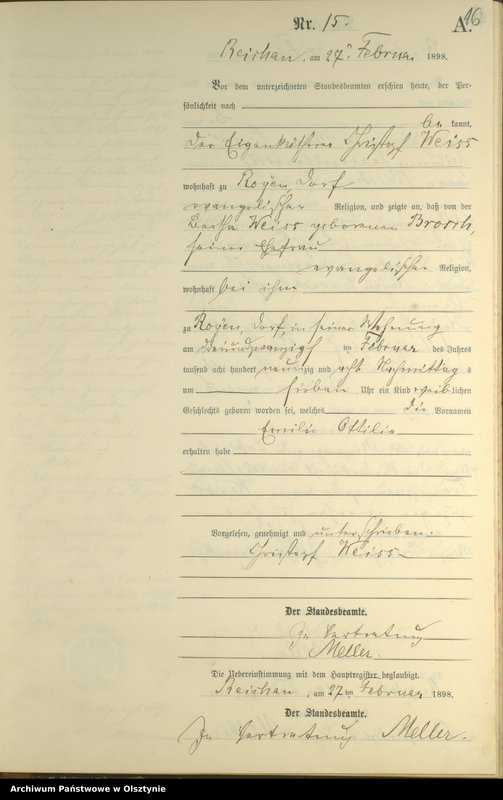 16
A.
Nr. 15.
Reichau, am 27ten Februar 1898.
Vor dem unterzeichneten Standesbeamten erschien heute, der Per-
sönlichkeit nach
be kannt,
der Eigenkäthner Christopf Weiss
wohnhaft zu Royen, Dorf
evangelischer Religion, und zeigte an, daß von der
Bertha Weiss geborenen Brosch,
seiner Ehefrau
evangelischer Religion,
wohnhaft bei ihm
zu Royen, Dorf, in seiner Wohnung
am dreiundzwanzigsten Februar des Jahres
tausend acht hundert neunzig und acht Nachmittags
um sieben Uhr ein Kind weiblichen
Geschlechts geboren worden sei, welches die Vornamen
Emilie Ottilie
erhalten habe
Vorgelesen, genehmigt und unterschrieben.
Christopf Weiss
Der Standesbeamte.
In Vertretung
Meller.
Die Uebereinstimmung mit dem Hauptregister beglaubigt.
Reichau, am 27ten Februar 1898.
Der Standesbeamte.
In Vertretung Meller.
Archiwum Państwowe w Olsztynie